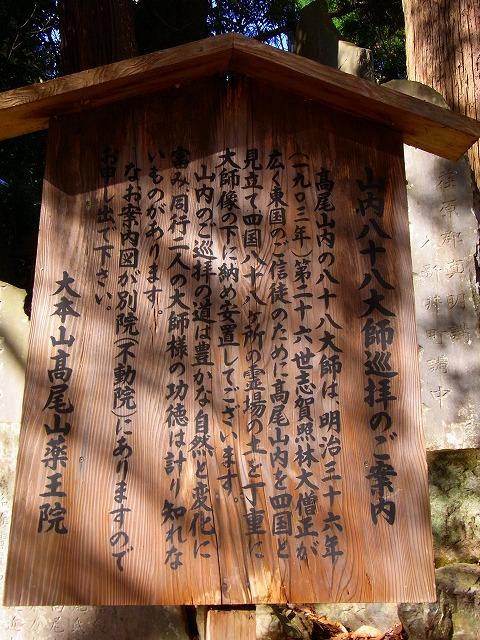 山内八十八大師巡拝のご案内
高尾山内の八十八大師は、明治三十六年
(一九〇三年)第二十六世志賀照林大僧正が
広く東国のご信徒のために高尾山内を四国と
見立て四国八十八ヶ所の霊場の土を丁重に
大師像の下に納め安置してございます。
山内のご巡拝の道は豊かな自然と変化に
富み、同行二人の大師様の功徳は計り知れな
いものがあります。
なお案内図が別院(不動院)にありますので
お申し出で下さい。
大本山高尾山薬王院